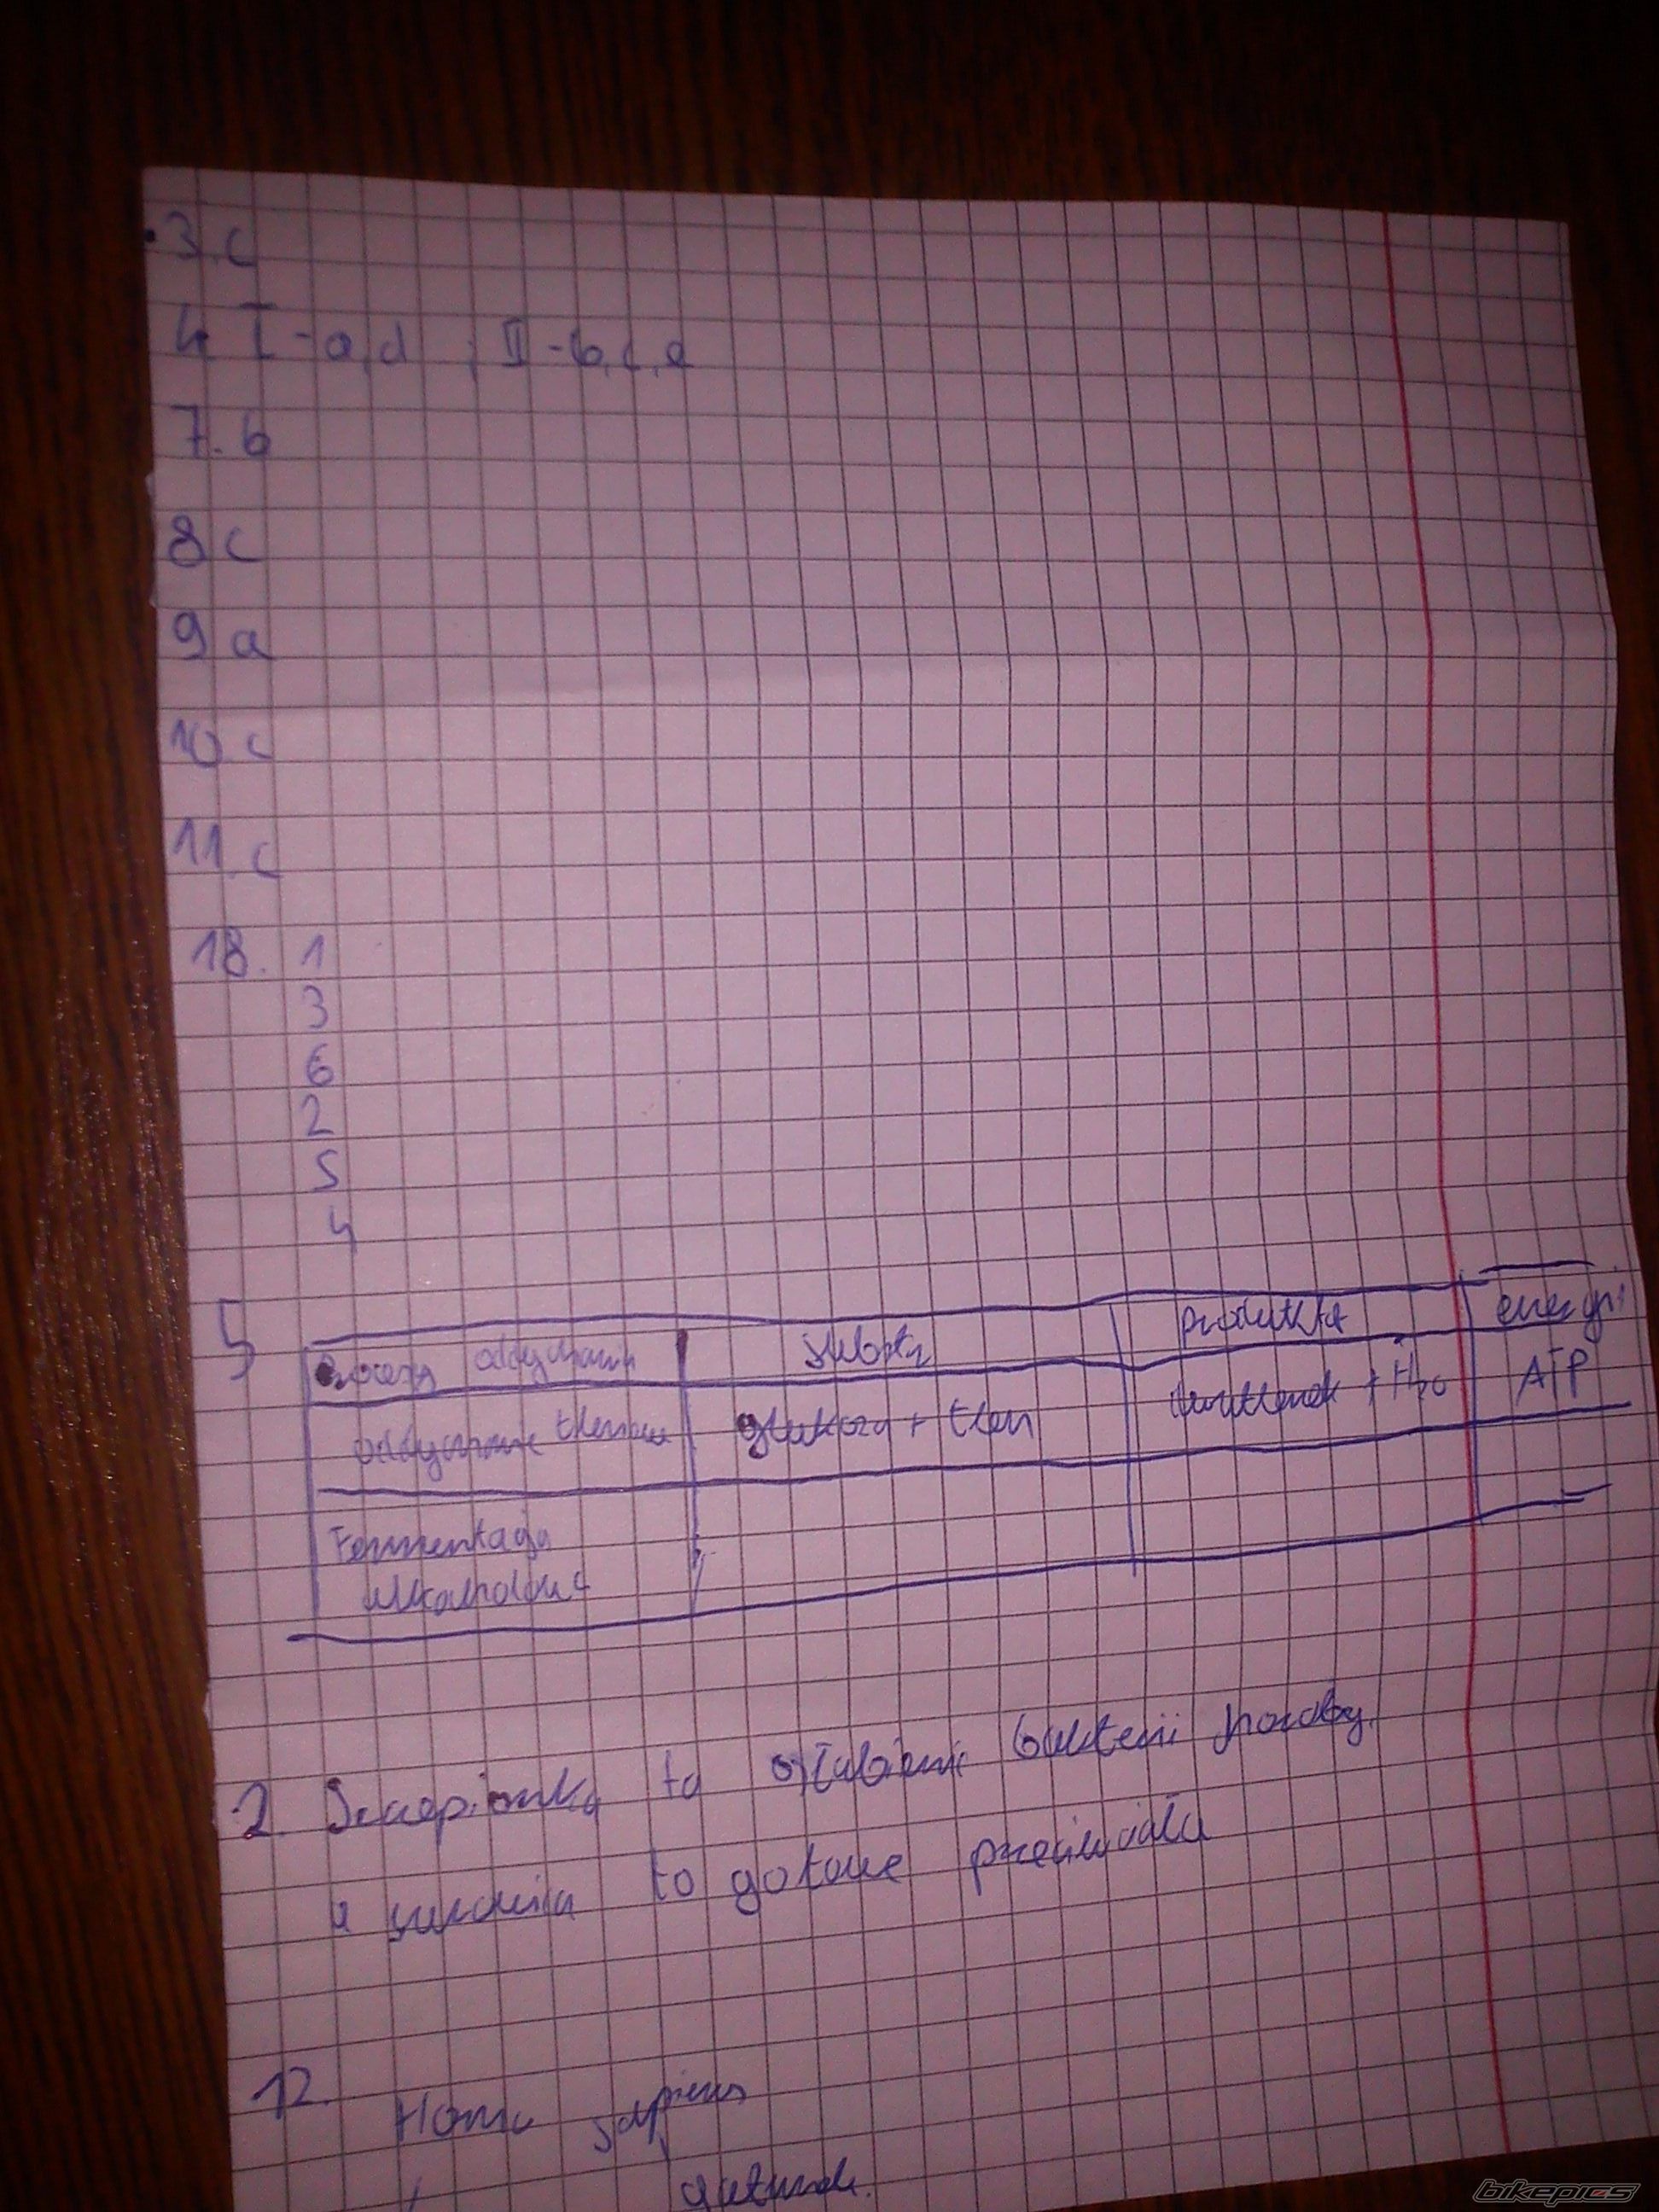 3.c
4. I-a,d ; II-b,c,e
7. b
8 c
9 a
10. c
11. c
18. 1
3
6
2
5
4
5
procesy oddychania substr produkta energi
oddychanie tlenowe glukoza + tlen + H2O ATP
Fermentacja alkoholowa
2. Szczepionka to osłabienie bakterii
a surowica to gotowe przeciwciała
12. Homo sapiens
gatunek.
bikepics